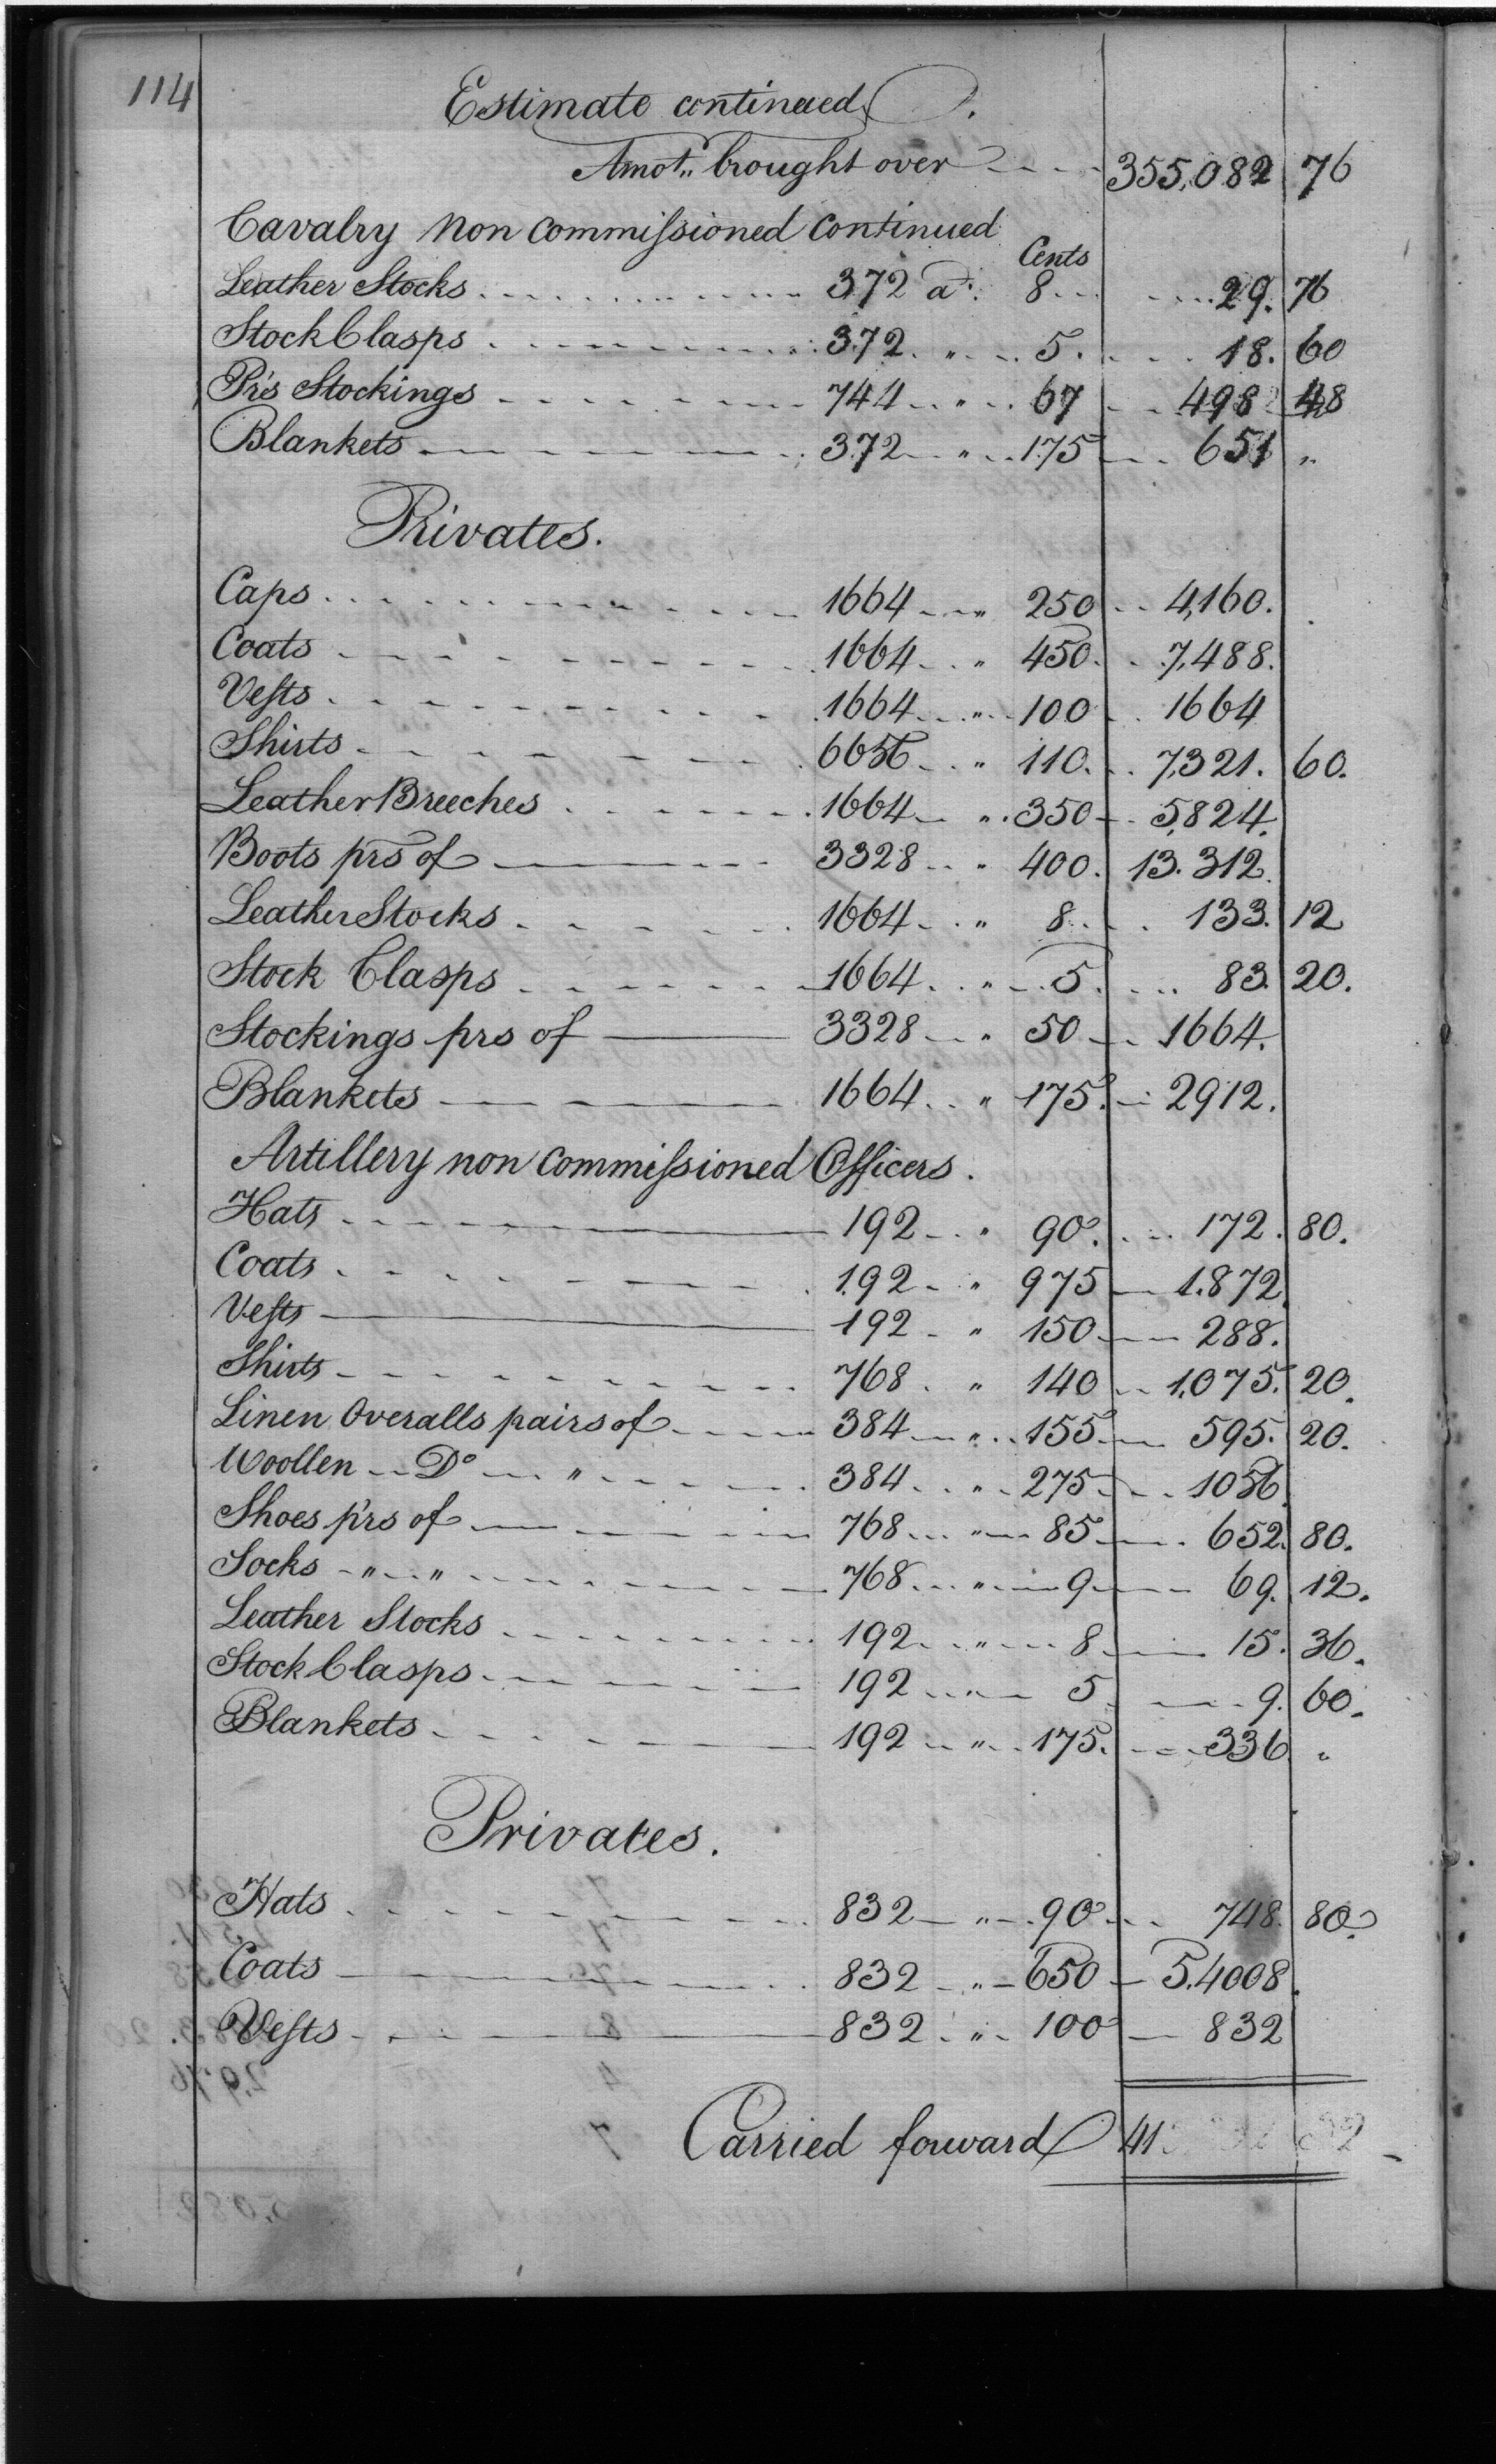 114
Estimate continued.
Amot. brought over 355,082 76
Cavalry non commissioned continued
Cents
Leather Stocks 372 a 8 29. 76
Stock Clasps 372 " 5. 18. 60
Prs Stockings 744 " 67 498 48
Blankets 372 " 175 651 "
Privates.
Caps 1664 " 250 4,160.
Coats 1664 " 450. 7,488.
Vests 1664 " 100 1664
Shirts 6656 " 110. 7,321. 60.
Leather Breeches 1664 " 350 5,824.
Boots prs of 3328 " 400. 13.312.
Leather Stocks 1664 " 8 133. 12
Stock Clasps 1664 " 5. 83. 20.
Stockings prs of 3328 " 50 1664.
Blankets 1664 " 175. 2912.
Artillery non commissioned Officers.
Hats 192 " 90. 172. 80.
Coats 192 " 975 1.872.
Vests 192 " 150 288.
Shirts 768 " 140 1,075. 20.
Linen Overalls pairs of 384 " 155 595. 20.
Woollen Do " 384 " 275 1056.
Shoes p'rs of 768 " 85 652. 80.
Socks " " 768 " 9 69. 12.
Leather Stocks 192 " 8 15. 36.
Stock Clasps 192 " 5 9. 60.
Blankets 192 " 175. 336. "
Privates.
Hats 832 " 90 748. 80.
Coats 832 " 650 5.4008.
Vests 832 " 100 832
Carried forward